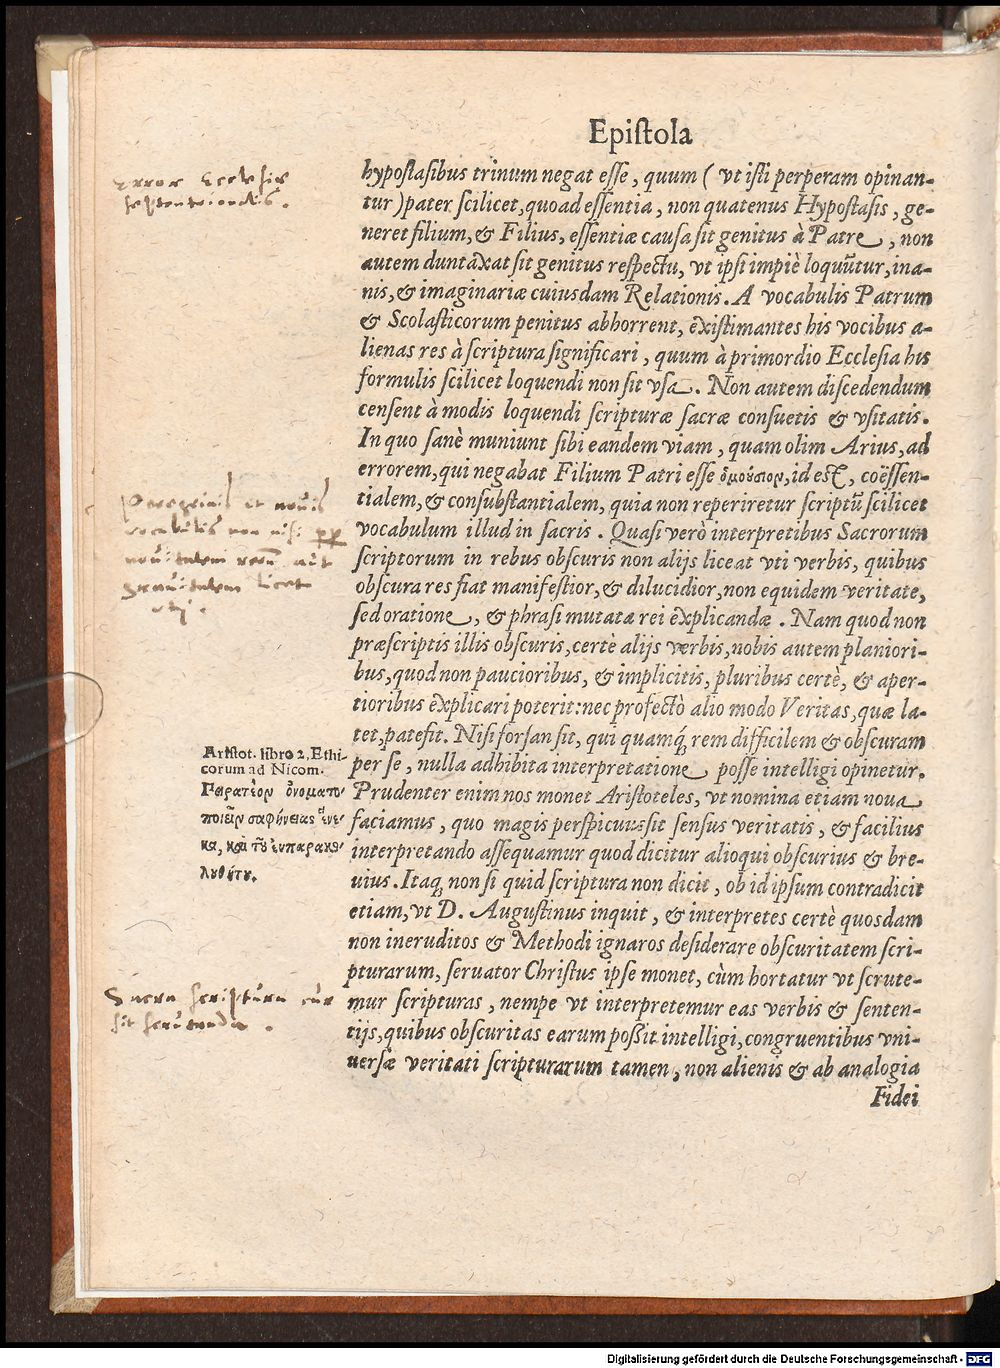 Epistola
hypostasibus trinum negat esse, quum ( vt isti perperam opinan-
tur ) pater scilicet, quoad essentia, non quatenus Hypostasis, ge-
neret filium, & Filius, essentiæ causa sit genitus à Patre, non
autem duntaxat sit genitus respectu, vt ipsi impiè loquũtur, ina-
nis, & imaginariæ cuiusdam Relationis. A vocabulis Patrum
& Scolasticorum penitus abhorrent, existimantes his vocibus a-
lienas res à scriptura significari, quum à primordio Ecclesia his
formulis scilicet loquendi non sit vsa. Non autem discedendum
censent à modis loquendi scripturæ sacræ consuetis & vsitatis.
In quo sanè muniunt sibi eandem viam, quam olim Arius, ad
errorem, qui negabat Filium Patri esse ὁμούσιον, id est, coëssen-
tialem, & consubstantialem, quia non reperiretur scriptũ scilicet
vocabulum illud in sacris. Quasi verò interpretibus Sacrorum
scriptorum in rebus obscuris non alijs liceat vti verbis, quibus
obscura res fiat manifestior, & dilucidior, non equidem veritate,
sed oratione, & phrasi mutata rei explicandæ. Nam quod non
præscriptis illis obscuris, certè alijs verbis, nobis autem planiori-
bus, quod non paucioribus, & implicitis, pluribus certè, & aper-
tioribus explicari poterit: nec profectò alio modo Veritas, quæ la-
tet, patefit. Nisi forsan sit, qui quamq; rem difficilem & obscuram
per se, nulla adhibita interpretatione posse intelligi opinetur.
Prudenter enim nos monet Aristoteles, vt nomina etiam noua
faciamus, quo magis perspicuus sit sensus veritatis, & facilius
interpretando assequamur quod dicitur alioqui obscurius & bre-
uius. Itaq; non si quid scriptura non dicit, ob id ipsum contradicit
etiam, vt D. Augustinus inquit, & interpretes certè quosdam
non ineruditos & Methodi ignaros desiderare obscuritatem scri-
pturarum, seruator Christus ipse monet, cùm hortatur vt scrute-
mur scripturas, nempe vt interpretemur eas verbis & senten-
tijs, quibus obscuritas earum possit intelligi, congruentibus vni-
uersæ veritati scripturarum tamen, non alienis & ab analogia
Fidei
Error Ecclesiæ
septentrionalis.
Peregrinis et nouis
vocabulis non nisi
nouitatem rerum aut
grauitatem licet
uti.
Aristot. libro 2. Ethi-
corum ad Nicom.
Πειρατέον ὀνοματο-
ποιεῖν σαφηνείας ἕνε-
κα, καὶ τοῦ εὐπαρακο-
λουθήτου.
Sacra scriptura cur
sit scrutanda.
Digitalisierung gefördert durch die Deutsche Forschungsgemeinschaft - DFG